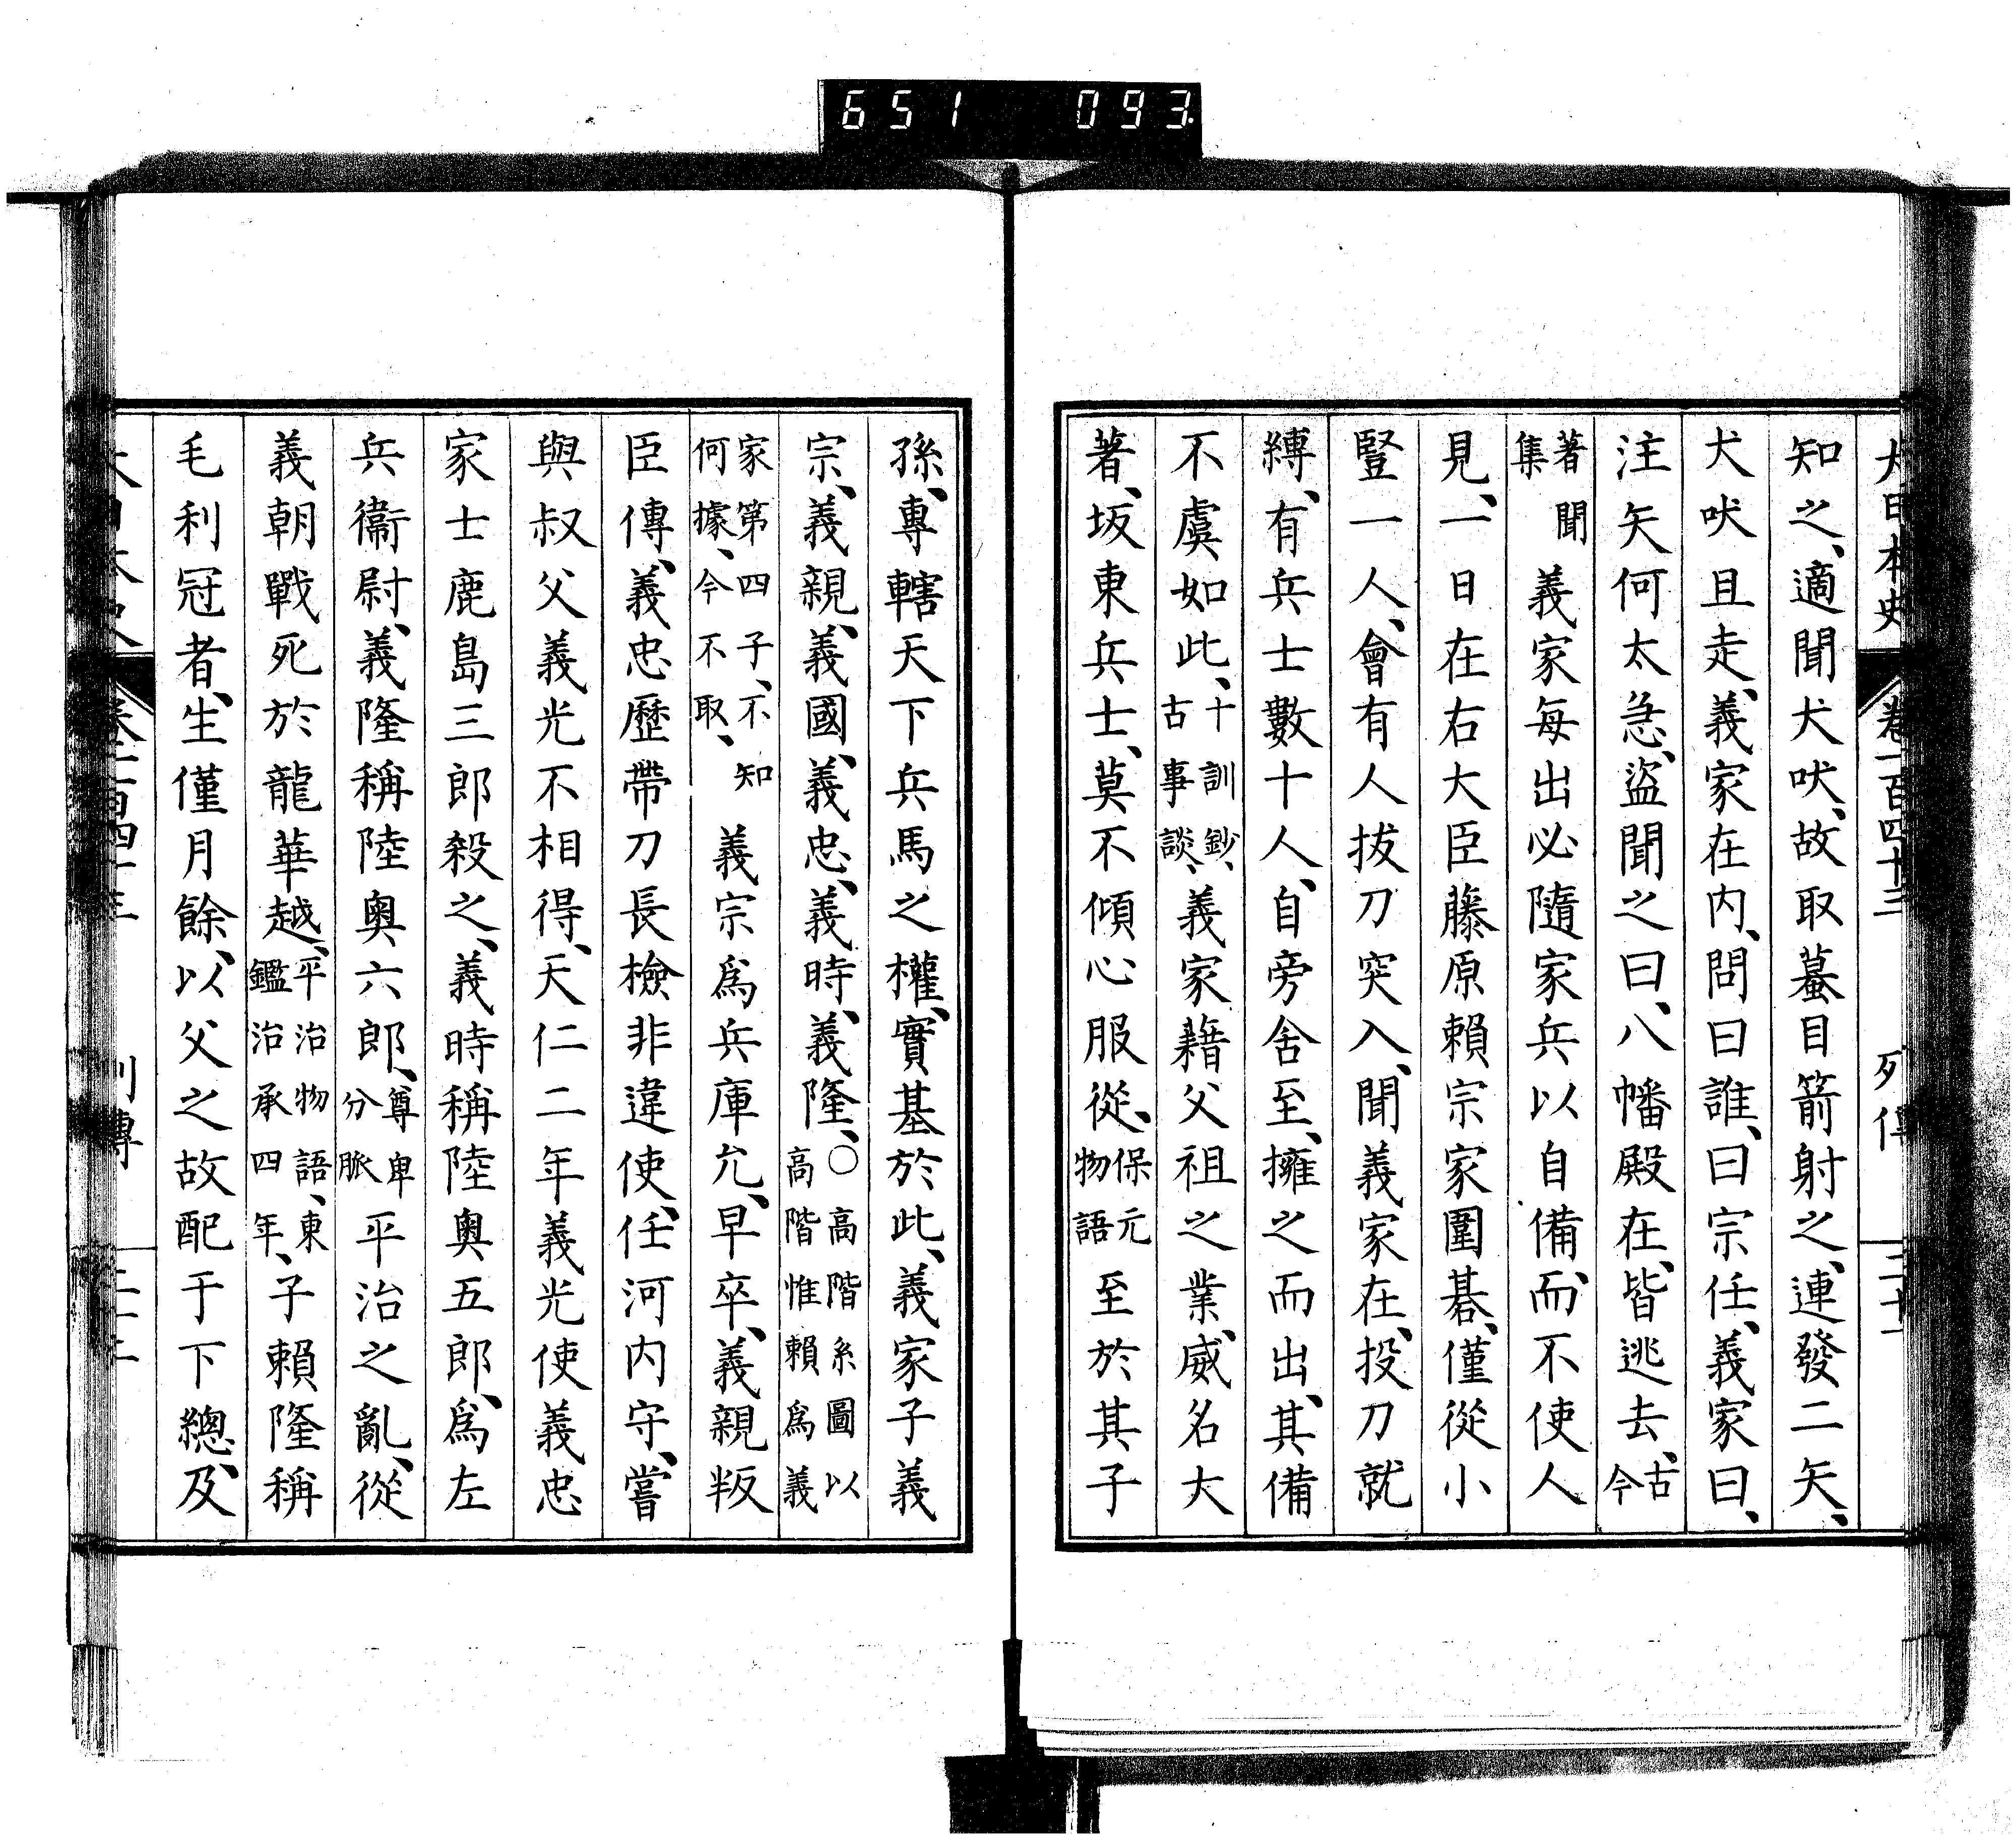 651 093.
大日本史 卷一百四十三 列傳 二十一
知之、適聞犬吠、故取蟇目箭射之、連發二矢、
犬吠且走、義家在内、問曰誰、曰宗任、義家曰、
注矢何太急、盜聞之曰、八幡殿在、皆逃去、古今
著聞集 義家每出必隨家兵以自備、而不使人
見、一日在右大臣藤原賴宗家圍碁、僅從小
豎一人、會有人拔刀突入、聞義家在、投刀就
縛、有兵士數十人、自旁舍至、擁之而出、其備
不虞如此、十訓鈔、古事談、義家藉父祖之業、威名大
著、坂東兵士、莫不傾心服從、保元物語 至於其子
孫、專轄天下兵馬之權、實基於此、義家子義
宗、義親、義國、義忠、義時、義隆、○高階系圖以高階惟賴爲義
家第四子、不知何據、今不取、 義宗爲兵庫允、早卒、義親叛
臣傳、義忠歷帶刀長檢非違使、任河内守、嘗
與叔父義光不相得、天仁二年義光使義忠
家士鹿島三郎殺之、義時稱陸奧五郎、爲左
兵衞尉、義隆稱陸奧六郎、尊卑分脈 平治之亂、從
義朝戰死於龍華越、平治物語、東鑑治承四年、子賴隆稱
毛利冠者、生僅月餘、以父之故配于下總、及
大日本史 卷一百四十三 列傳